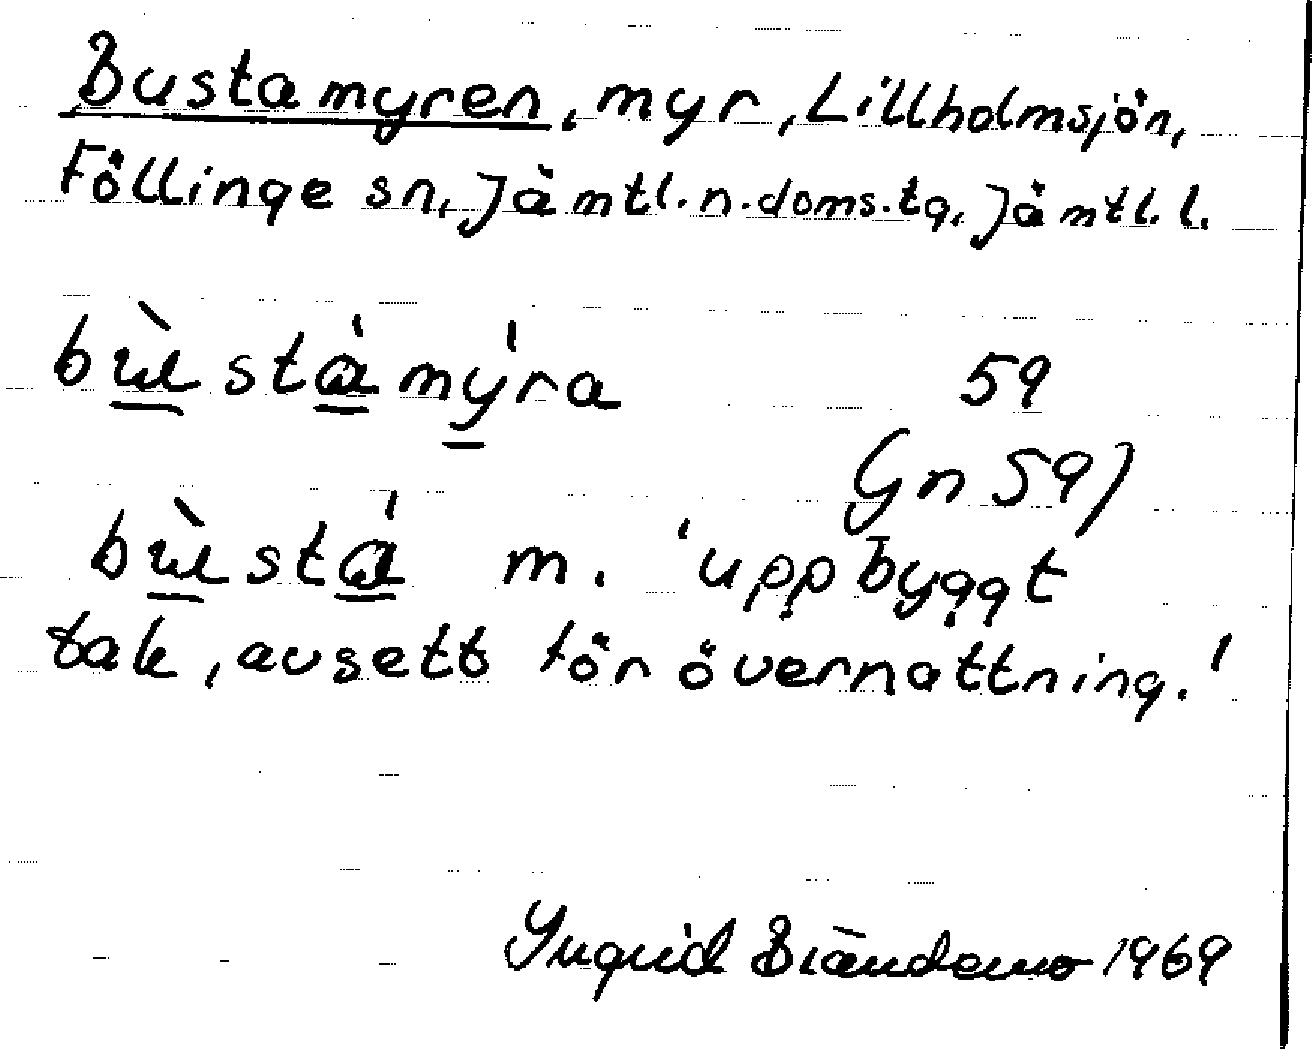 Bustamyren, myr, Lillholmsjön,
Föllinge sn, Jämtl. n. doms. tg, Jämtl. l.
bùstàmýra 59
(jn 59)
bùstá m. 'uppbyggt
tak, avsett för övernattning.'
Yngrid Brändemo 1969